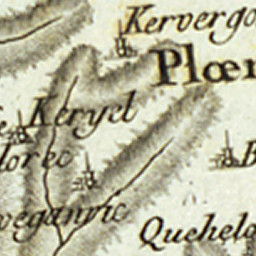 Kervergo
Plœr
Keryel
lorec
veganric
Quehela